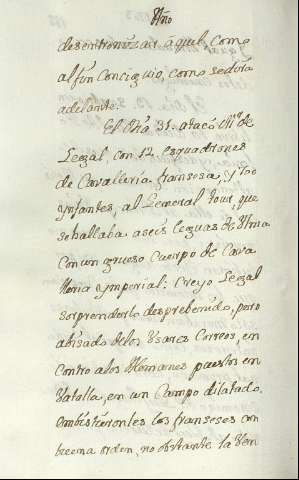 desentronizar aquel, como
al fin consiguio, como se dira
adelante.
El Dia 31. atacó Mr. de
Legal, con 12 esquadrones
de Cavalleria fransesa, y
ynfantes, al General
que
se hallaba a seis leguas de Ulma
con un grueso Cuerpo de Cava
lleria ymperial: Creyo Legal
sorprenderlo desprebenido, pero
abisado de los Usares Correos, en
contro a los Alemanes puestos en
Vatalla, en un Campo dilatado.
Ambistieronles los franseses con
buena orden, no obstante la Ven